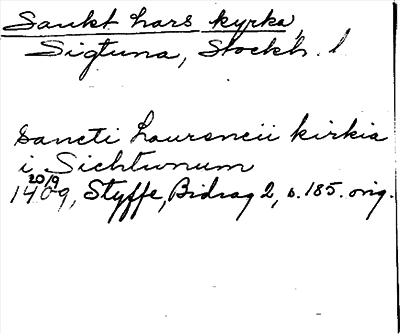 Sankt Lars kyrka,
Sigtuna, Stockh. l
Sancti Laurencii kirkia
i Sichtunum
20/9
1409, Styffe, Bidrag 2, s. 185. orig.